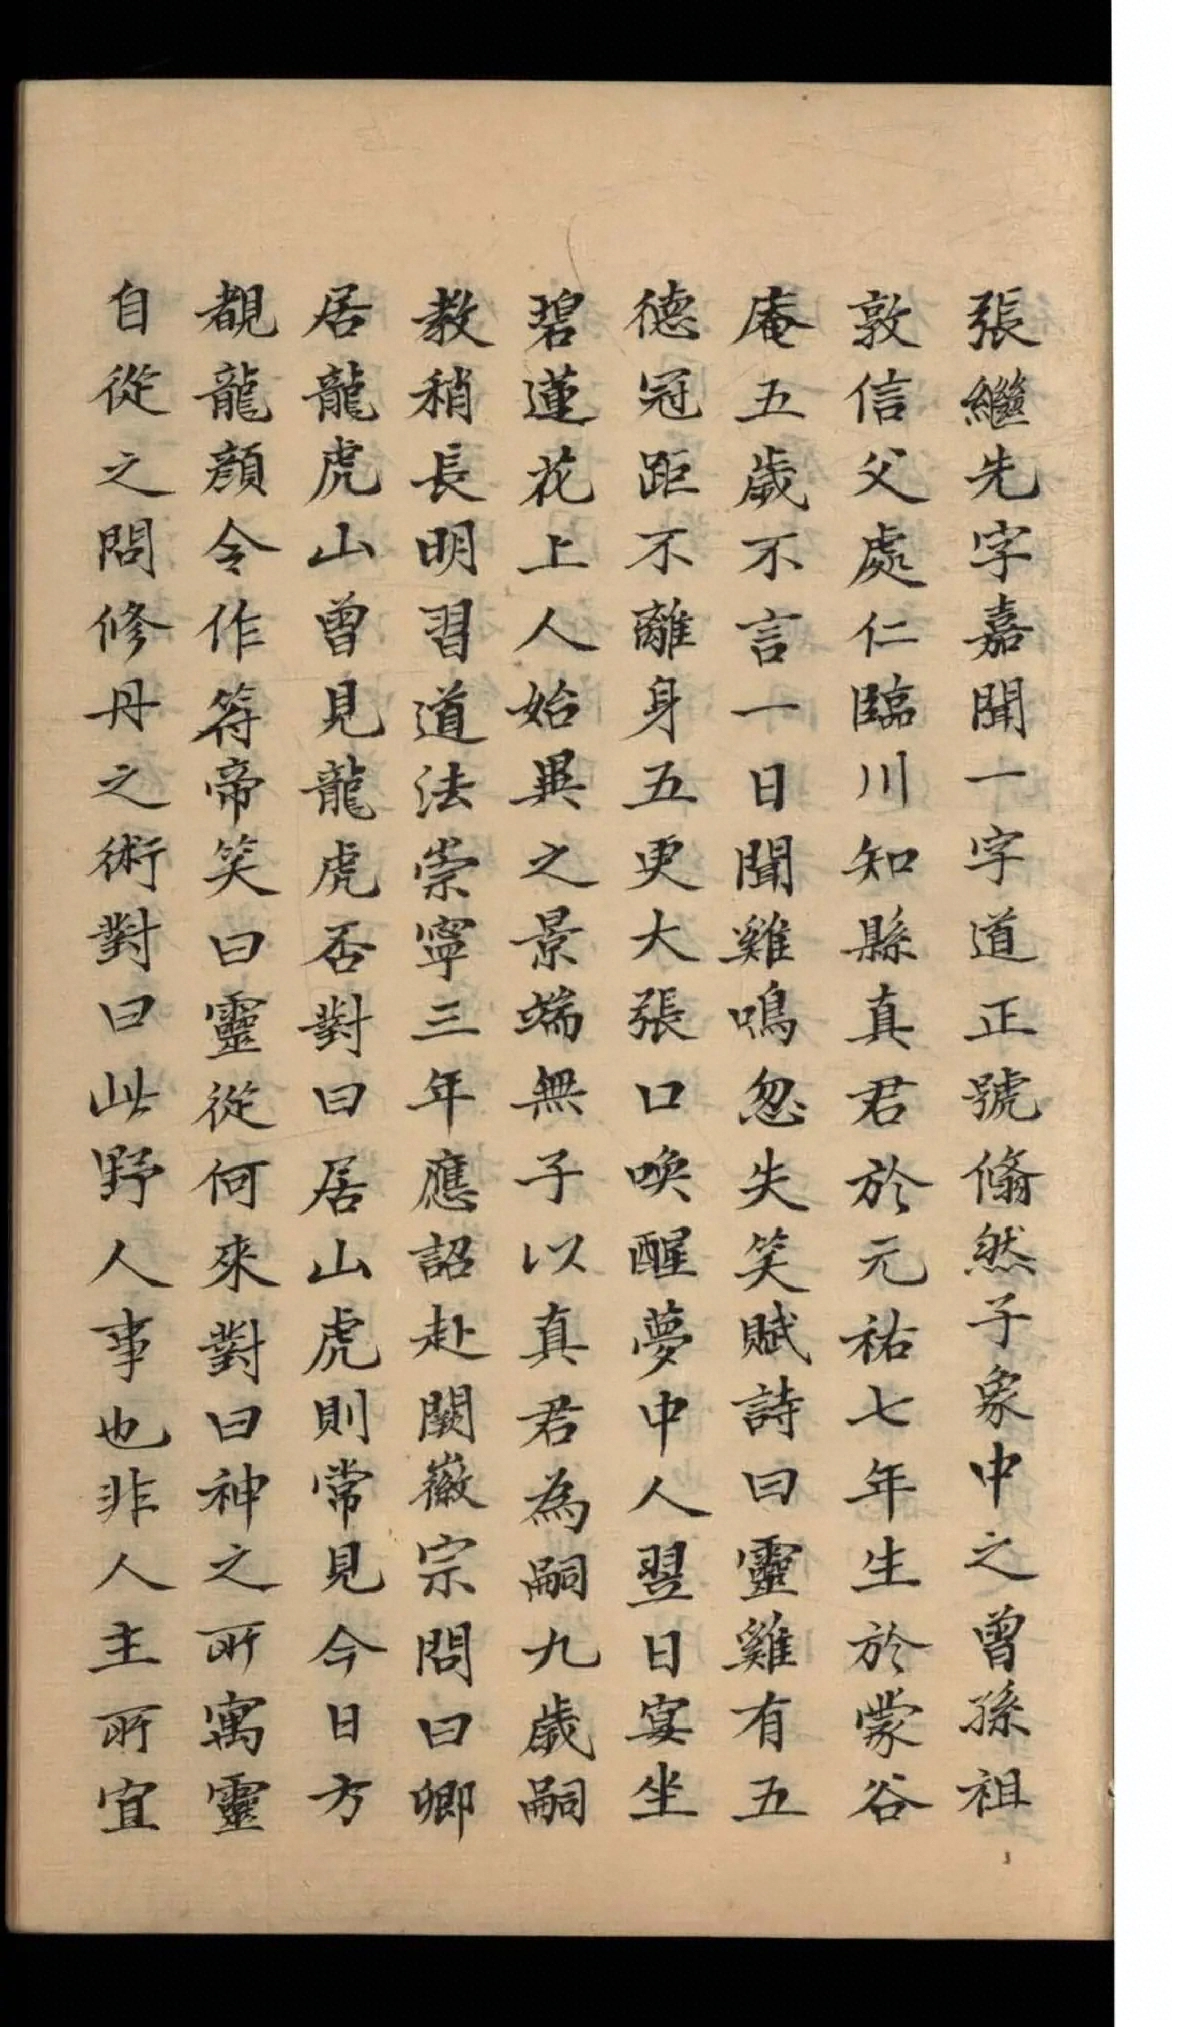 張繼先字嘉聞一字道正號翛然子象中之曾孫祖
敦信父處仁臨川知縣真君於元祐七年生於蒙谷
庵五歲不言一日聞雞鳴忽失笑賦詩曰靈雞有五
德冠距不離身五更大張口喚醒夢中人翌日宴坐
碧蓮花上人始異之景端無子以真君為嗣九歲嗣
教稍長明習道法崇寧三年應詔赴闕徽宗問曰卿
居龍虎山曾見龍虎否對曰居山虎則常見今日方
覩龍顏令作符帝笑曰靈從何來對曰神之所寓靈
自從之問修丹之術對曰此野人事也非人主所宜